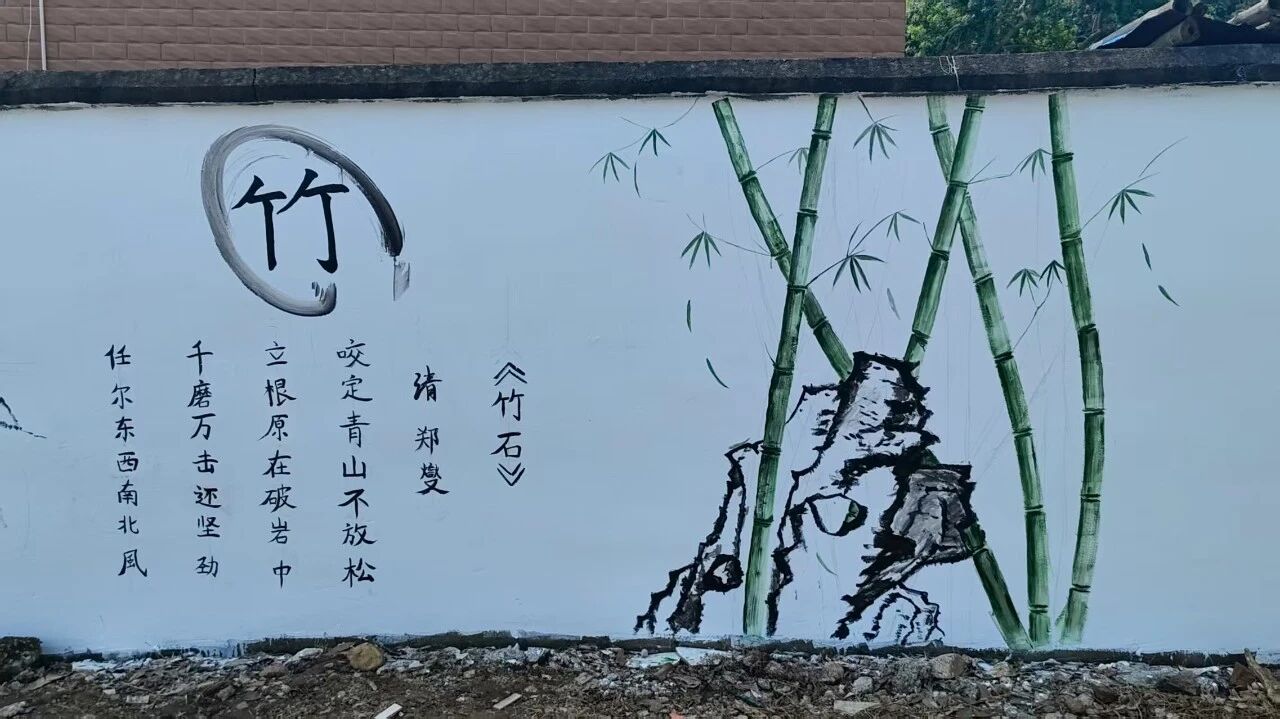 竹
《竹石》
清 郑燮
咬定青山不放松
立根原在破岩中
千磨万击还坚劲
任尔东西南北風